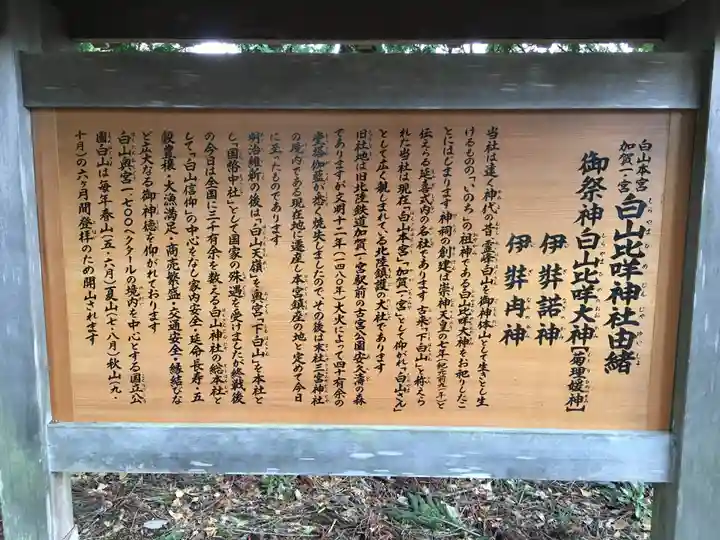 白山本宮
加賀一ノ宮
白山比咩神社由緒
御祭神 白山比咩大神[菊理媛神]
伊弉諾神
伊弉冉神
当社は遠く神代の昔、霊峰白山を御神体山として生きとし生
けるものの「いのち」の祖神である白山比咩大神をお祀りしたこ
とにはじまります 神祠の創建は崇神天皇の七年(紀元前九一年)と
伝えらる延喜式内の名社であります 古来「下白山」と称えら
れた当社は現在「白山本宮」「加賀一ノ宮」として仰がれ「白山さん」
として広く親しまれている北陸鎮護の大社であります
旧社地は旧北陸鉄道加賀一ノ宮駅前の古宮公園安久濤の森
でありますが文明十二年(一四八〇年)大火によって四十有余の
堂塔伽藍が悉く焼失しましたので、その後は末社三宮神社
の境内である現在地に遷座し本宮鎮座の地と定めて今日
に至ったものであります
明治維新の後は「白山天嶺」を奥宮「下白山」を本社と
し「国幣中社」として国家の殊遇を受けましたが終戦後
の今日は全国に三千有余を数える白山神社の総本社と
して「白山信仰」の中心をなし家内安全・延命長寿・五
穀豊穣・大漁満足・商売繁盛・交通安全・縁結びな
ど広大なる御神徳を仰がれております
白山奥宮一七〇〇ヘクタールの境内を中心とする国立公
園白山は毎年春山(五・六月)夏山(七・八月)秋山(九・
十月)の六ヶ月間登拝のため開山されます